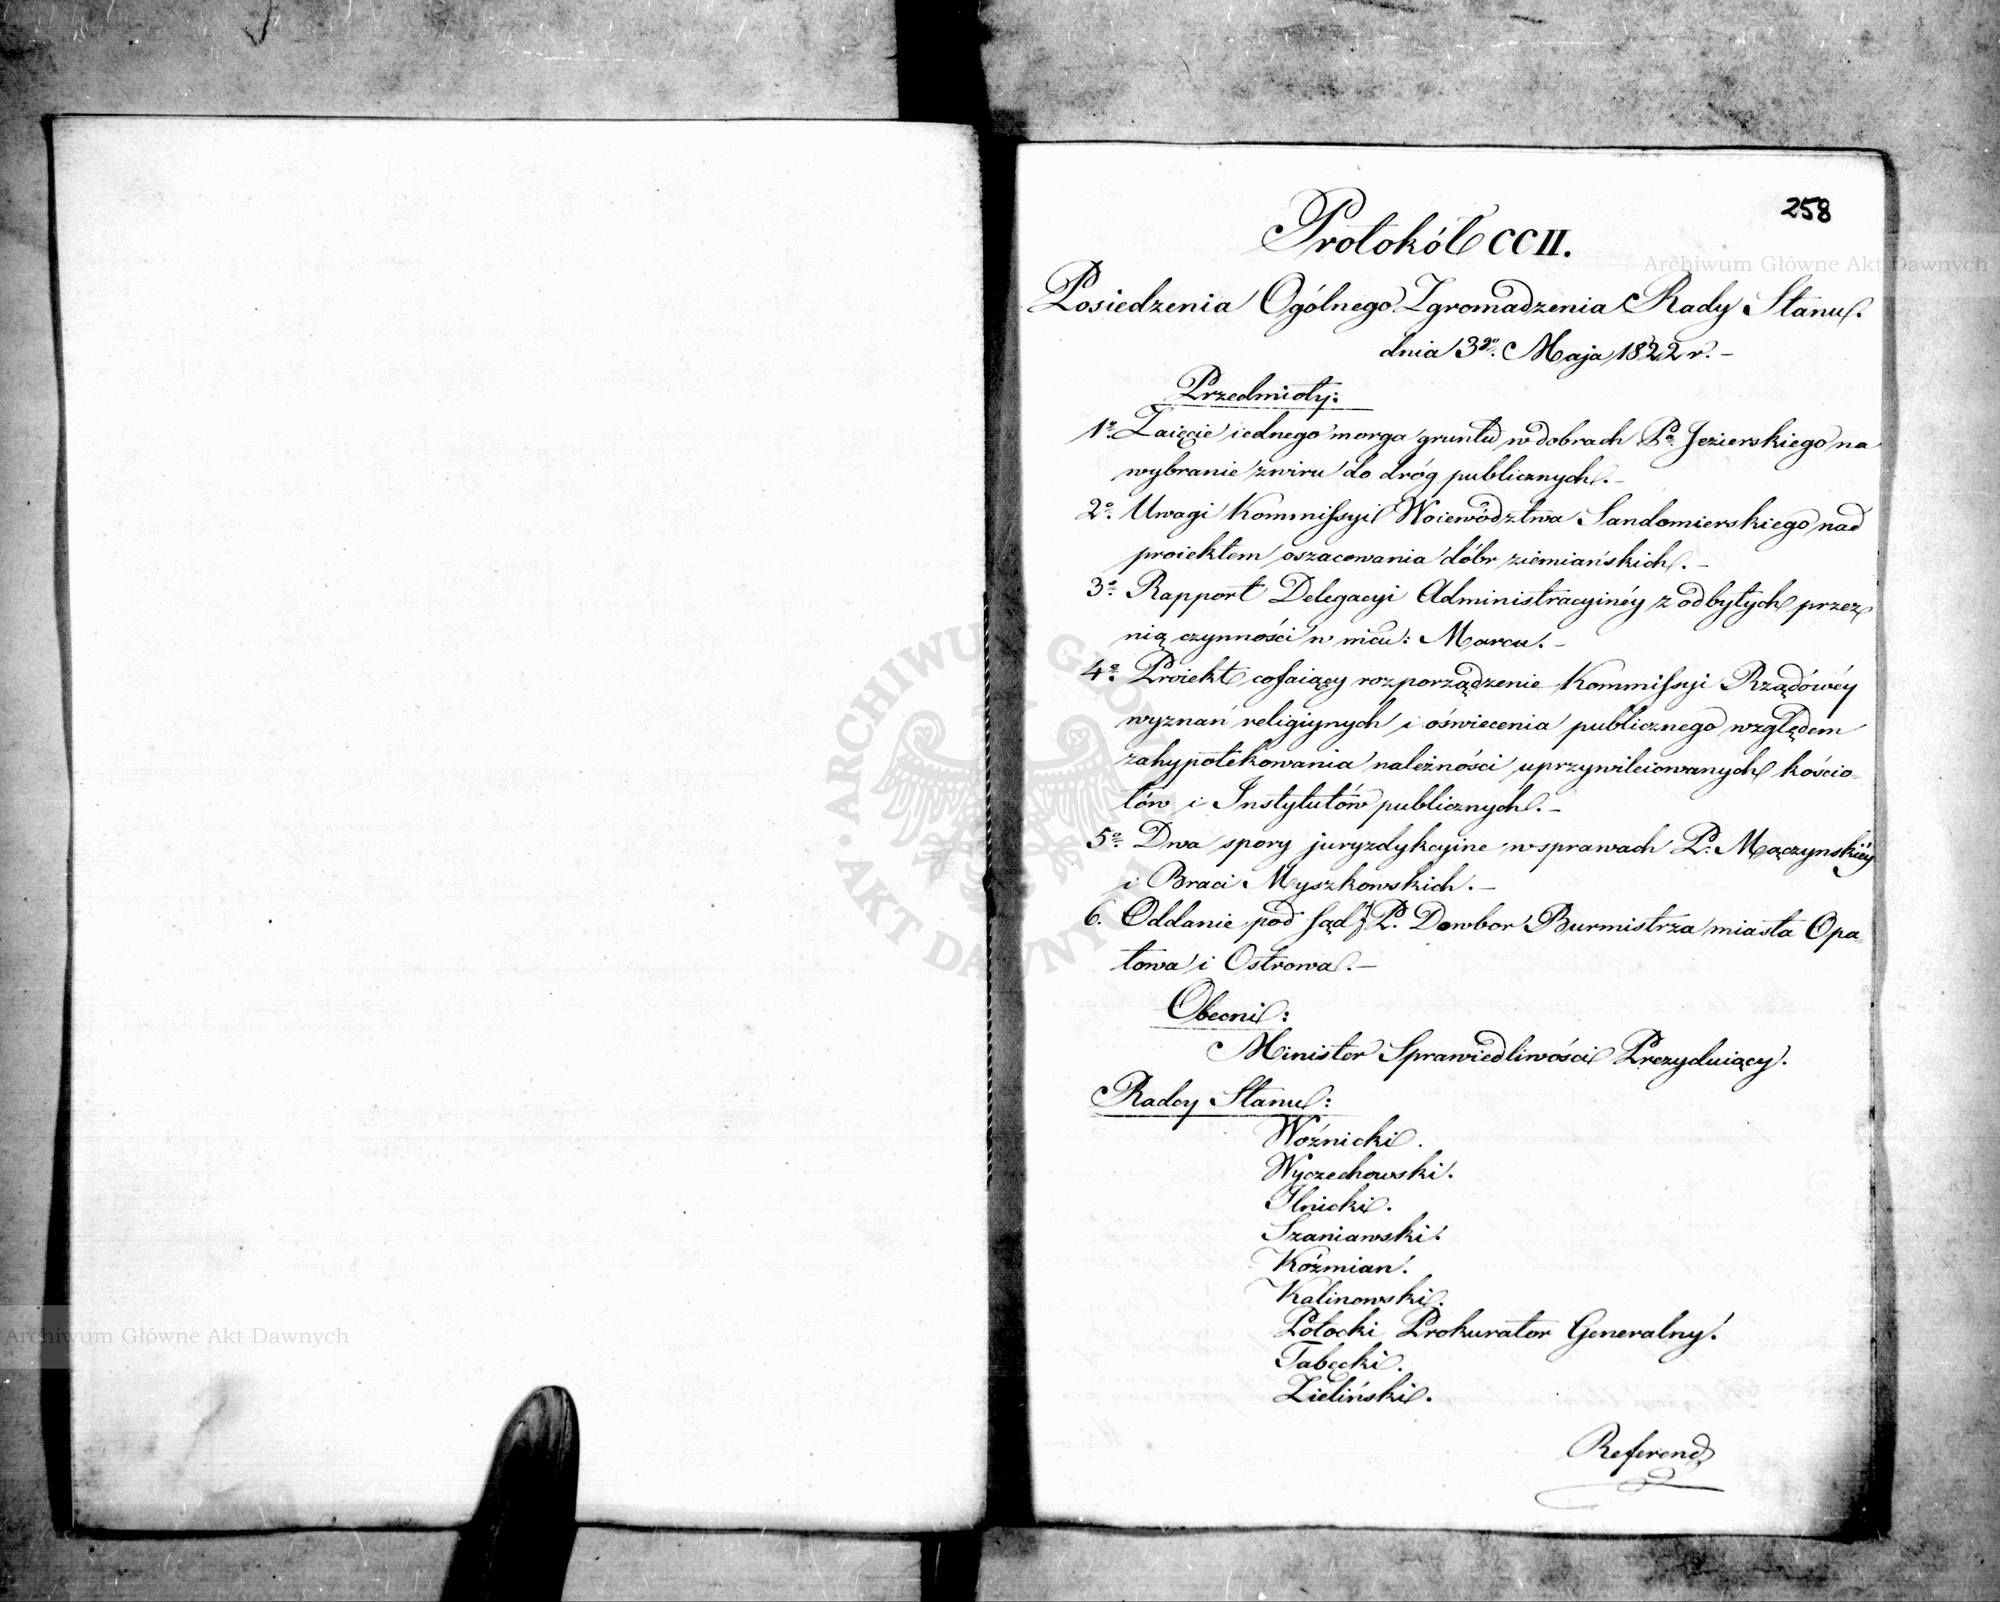 258
Protokół CCII.
Posiedzenia Ogólnego Zgromadzenia Rady Stanu.
dnia 3go. Maja 1822 r. –
Przedmioty:
1o. Zaięcie iednego morga gruntu w dobrach Po. Jezierskiego na
wybranie żwiru do dróg publicznych. –
2o. Uwagi Kommissyi Woiewództwa Sandomierskiego nad
proiektem oszacowania dóbr ziemiańskich. –
3o. Rapport Delegacyi Administracyinéy z odbytych przez
nią czynności w mcu: Marcu. –
4o. Proiekt cofaiący rozporządzenie Kommissyi Rządówéy
wyznań religiynych i oświecenia publicznego względem
zahypotekowania należności uprzywileiowanych kościo-
łów i Instytutów publicznych. –
5o. Dwa spory juryzdykcyine w sprawach P. Mączynskiéy
i Braci Myszkowskich. –
6. Oddanie pod sąd P. Dowbor Burmistrza miasta Opa-
towa i Ostrowa. –
Obecni:
Minister Sprawiedliwości Prezyduiący.
Radcy Stanu:
Woźnicki.
Wyczechowski.
Ilnicki.
Szaniawski.
Koźmian.
Kalinowski.
Potocki Prokurator Generalny.
Tabęcki.
Zieliński.
Referend
Archiwum Główne Akt Dawnych
ARCHIWUM GŁÓWNE AKT DAWNYCH
Archiwum Główne Akt Dawnych